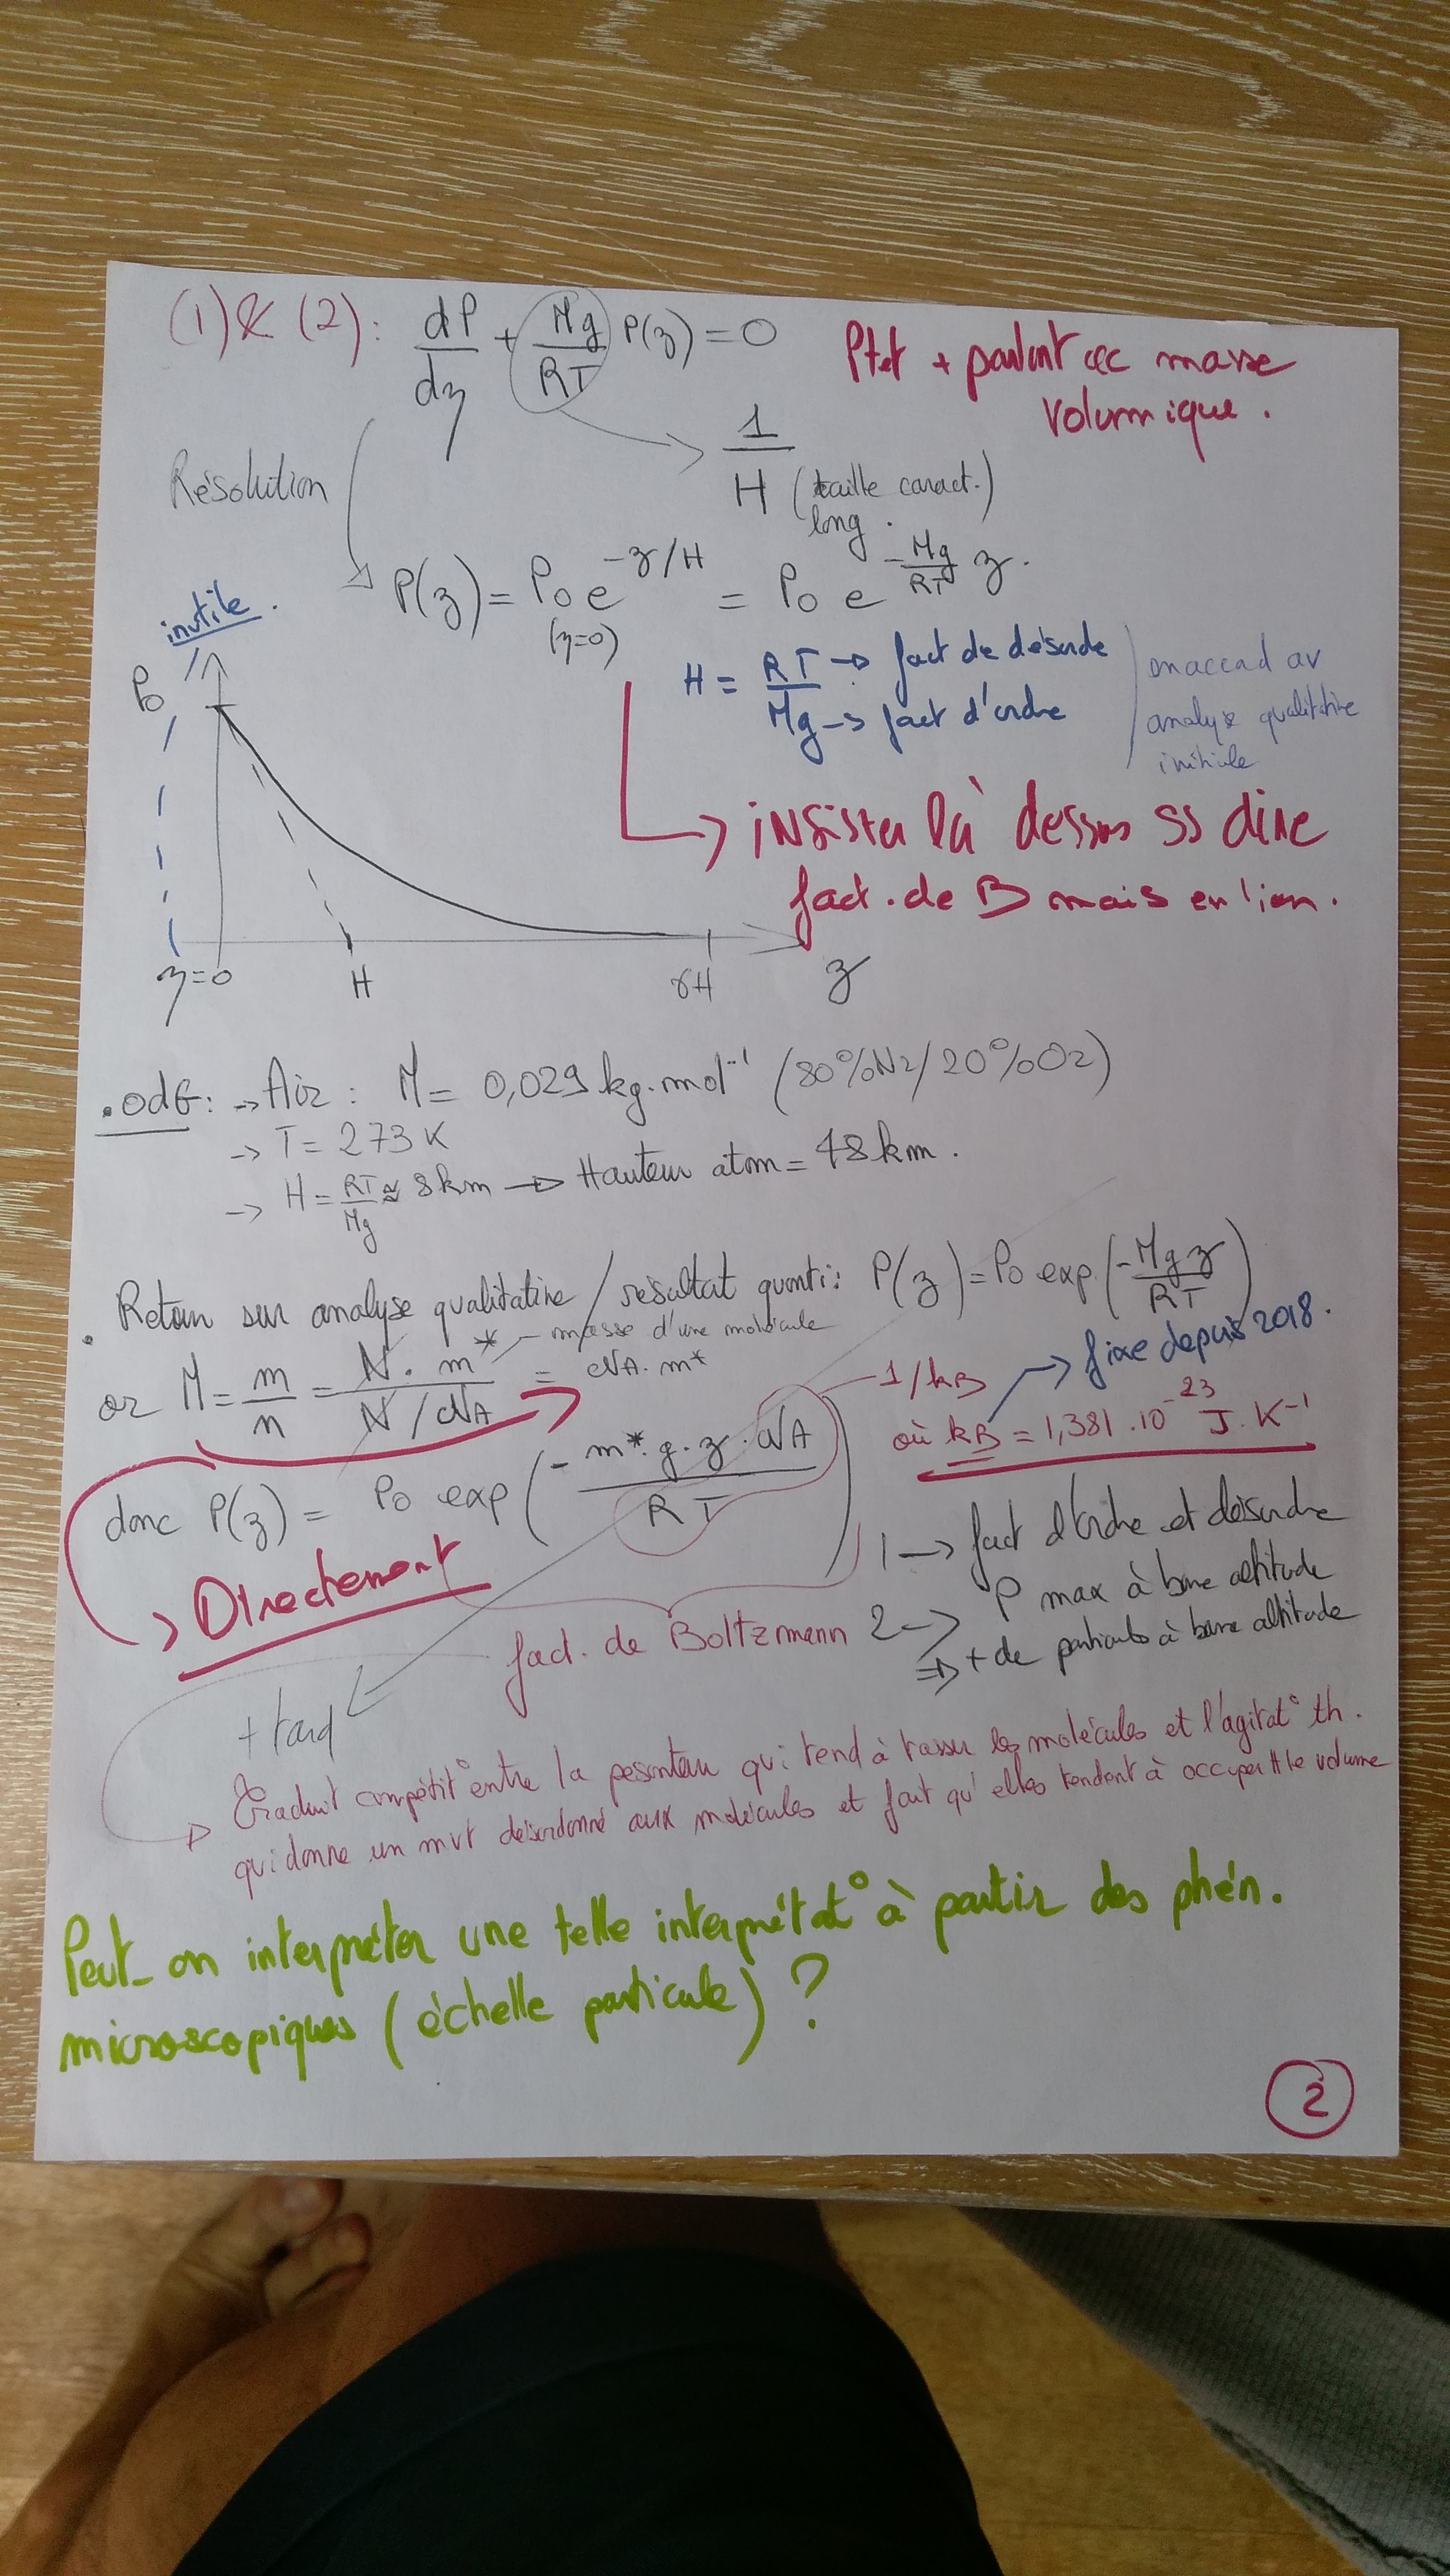 (1) & (2) : dP/dz + Mg/RT P(z) = 0
Ptet + parlant ac masse
volumique.
1/H (taille caract.)
long.
Résolution
P(z) = P0 e^(-z/H) = P0 e^(-Mg/RT z).
(z=0)
inutile.
H = RT/Mg
RT → fact de désordre
Mg → fact d'ordre
en accad av
analyse qualitative
initiale
P0
→ iNsister là dessus ss dire
fact. de B mais en lien.
z=0 H 6H z
. odG : → Air : M = 0,029 kg.mol⁻¹ (80%N2/20%O2)
→ T = 273 K
→ H = RT/Mg ≈ 8km → Hauteur atm = 48 km.
. Retour sur analyse qualitative / résultat quanti : P(z) = P0 exp(-Mgz/RT)
* - masse d'une molécule
or M = m/n = N.m*/(N/NA) = NA.m*
1/kB
→ fixe depuis 2018.
où kB = 1,381.10⁻²³ J.K⁻¹
donc P(z) = P0 exp(-m*.g.z.NA/RT)
→ Directement
fact. de Boltzmann
1 → fact d'ordre et désordre
2 → P max à basse altitude
⇒ + de particules à basse altitude
+ tard
Traduit compétit° entre la pesanteur qui tend à tasser les molécules et l'agitat° th.
qui donne un mvt désordonné aux molécules et fait qu'elles tendent à occuper tt le volume
Peut-on interpréter une telle interprétat° à partir des phén.
microscopiques (échelle particule) ?
2